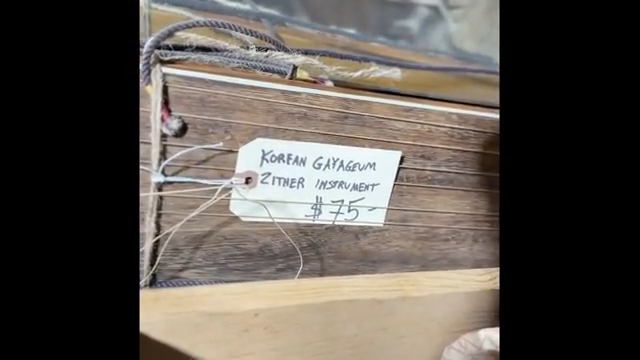 KOREAN GAYAGEUM
ZITHER INSTRUMENT
$75-